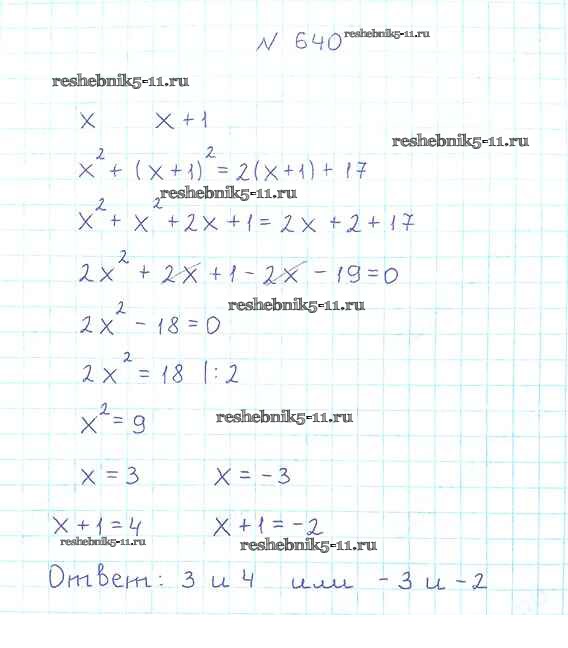 № 640 reshebnik5-11.ru
reshebnik5-11.ru
x x + 1
reshebnik5-11.ru
x² + (x+1)² = 2(x+1) + 17
reshebnik5-11.ru
x² + x² + 2x + 1 = 2x + 2 + 17
2x² + 2x + 1 - 2x - 19 = 0
reshebnik5-11.ru
2x² - 18 = 0
2x² = 18 |:2
x² = 9 reshebnik5-11.ru
x = 3 x = -3
x + 1 = 4 x + 1 = -2
reshebnik5-11.ru reshebnik5-11.ru
Ответ: 3 и 4 или -3 и -2